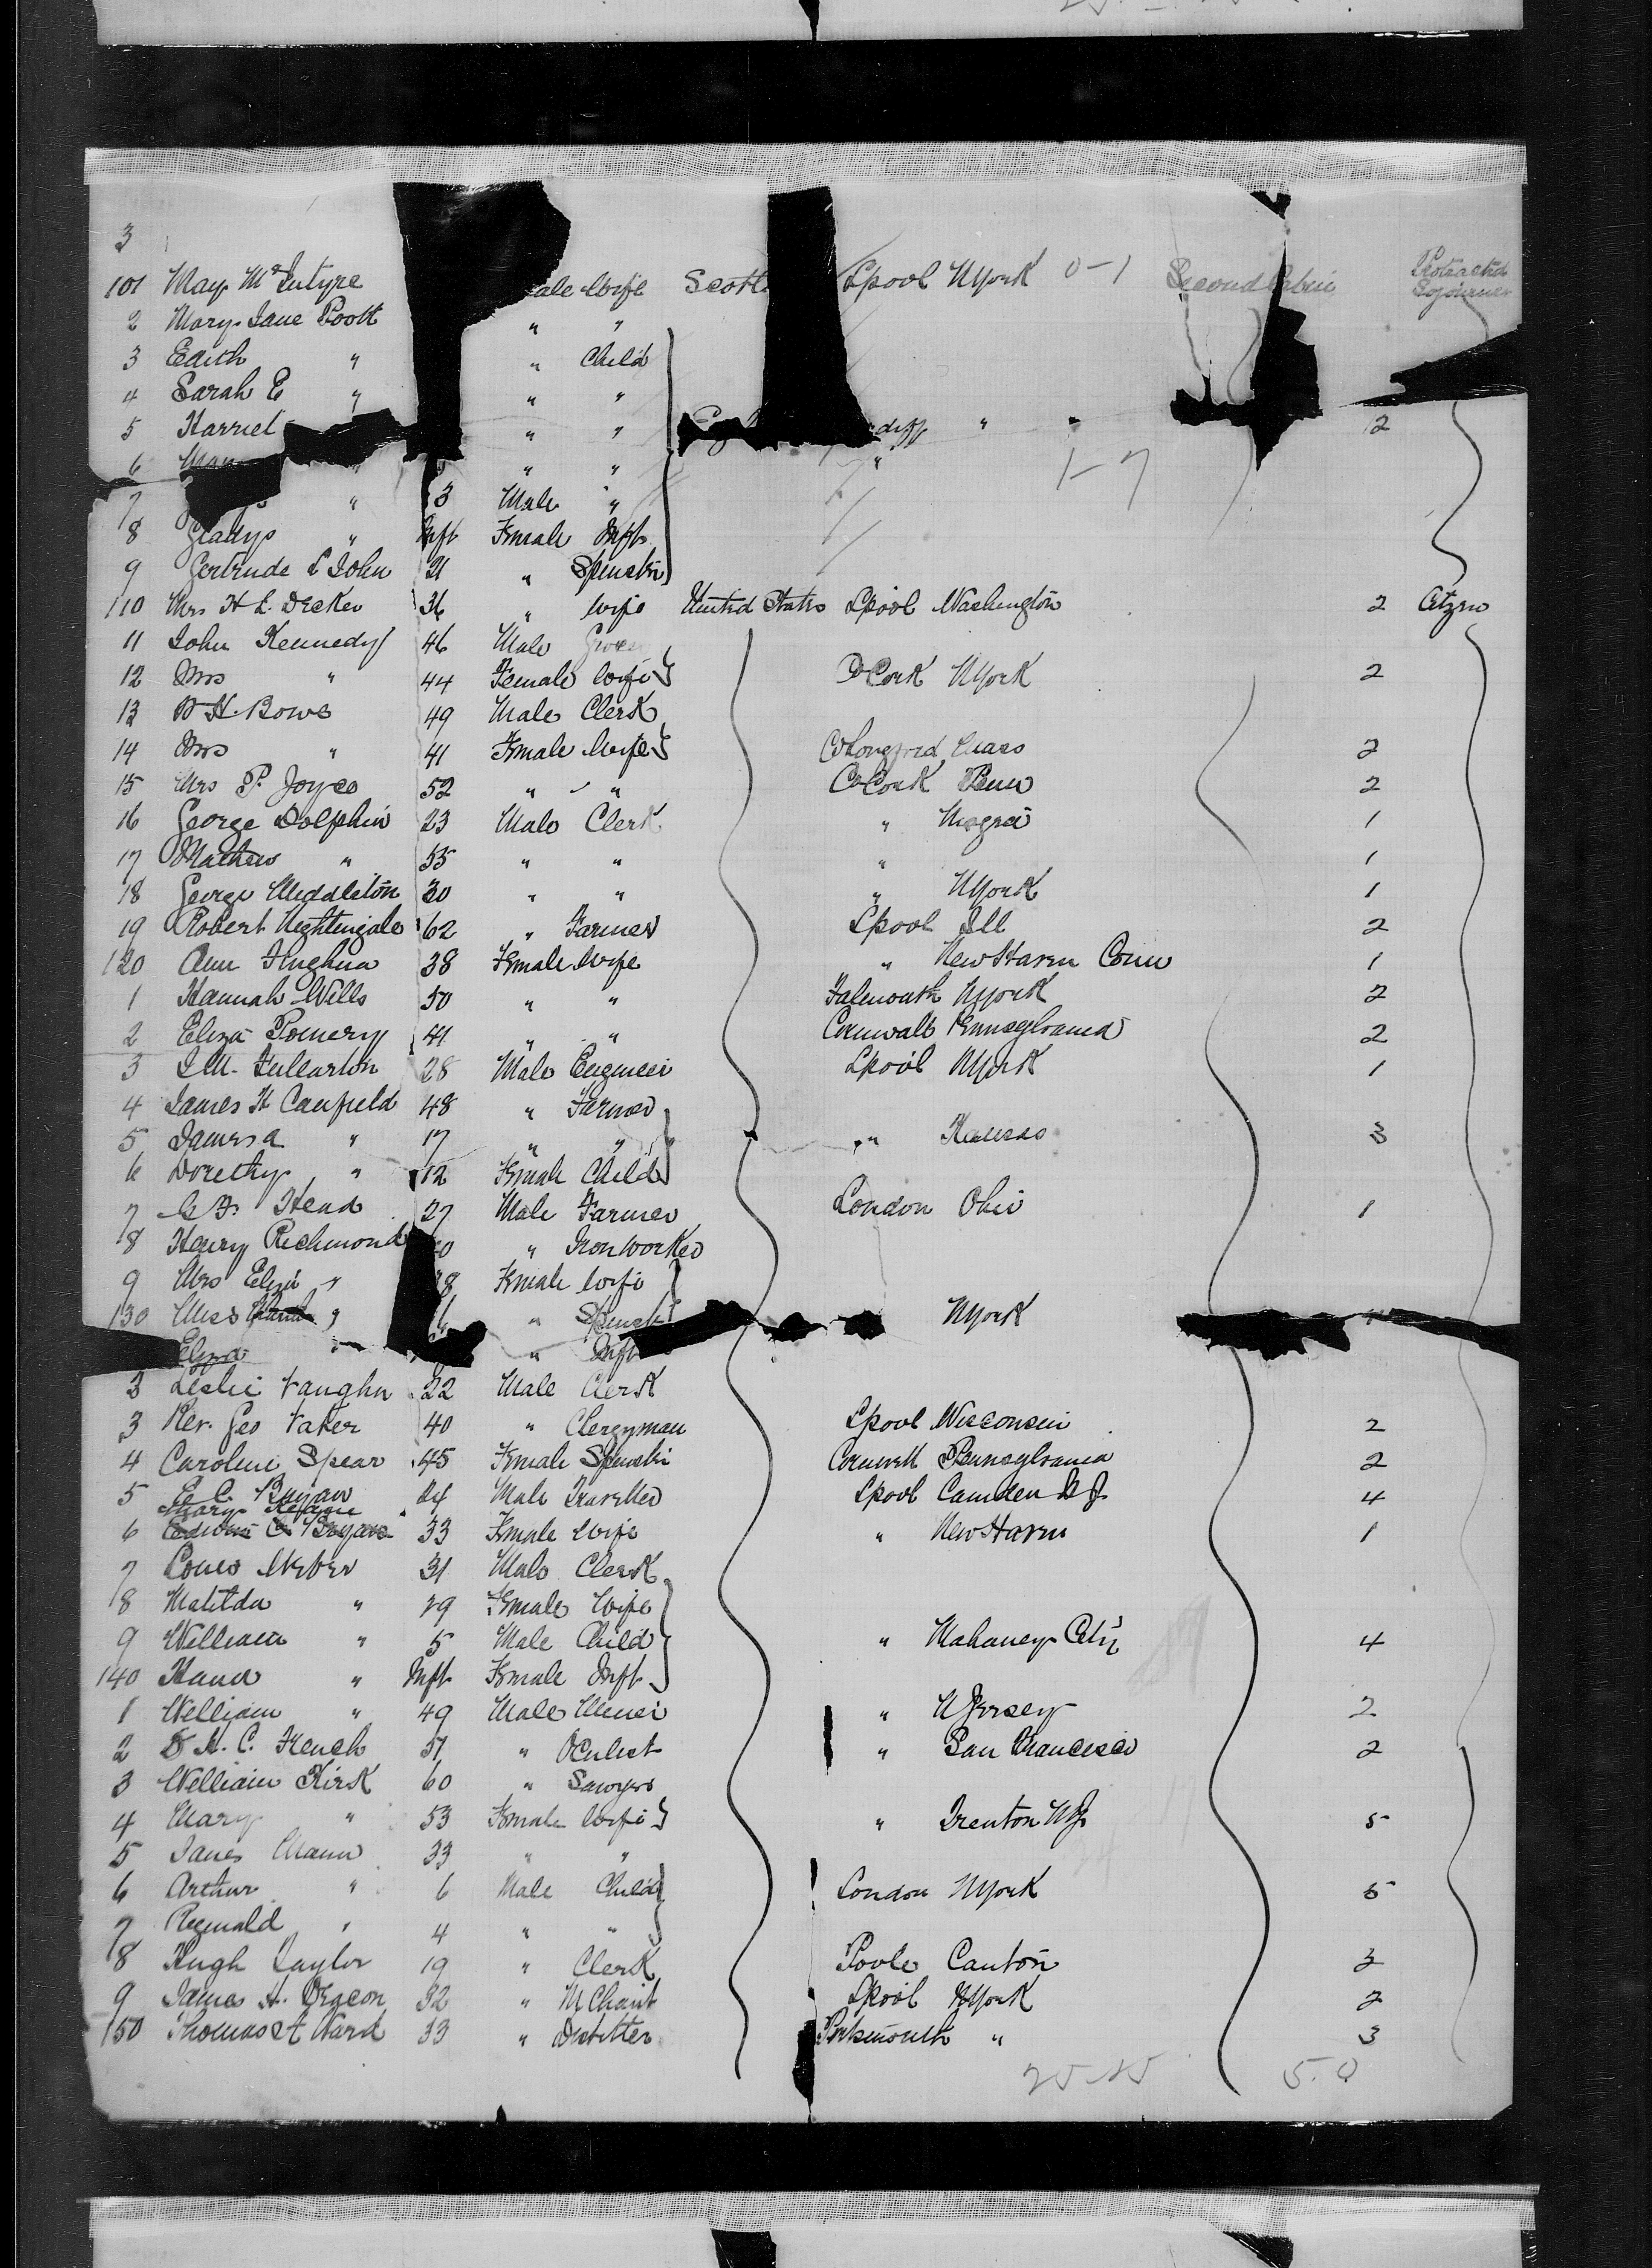 3
101 May McIntyre ale Wife Scotl Lpool NYork 0-1 Second Cabin Protracted Sojourner
2 Mary Jane Scott " "
3 Edith " " Child
4 Sarah E " " "
5 Harriet " " " " 2
6 " " " 1-7
7 " 3 Male "
8 Gladys " Inft Female Inft
9 Gertrude St John 21 " Spinster
110 Mrs H L Decker 36 " Wife United States Lpool Washington 2 Citizen
11 John Kennedy 46 Male Grocer
12 Mrs " 44 Female Wife Co Cork NYork 2
13 H. Bowe 49 Male Clerk
14 Mrs " 41 Female Wife Co Longford Mass 2
15 Mrs P. Joyce 52 " " Co Cork Penn 2
16 George Dolphin 23 Male Clerk " 1
17 Mathew " 55 " " " 1
18 George Middleton 30 " " " NYork 1
19 Robert Nightingale 62 " Farmer Lpool Ill 2
120 Ann 38 Female Wife " New Haven Conn 1
1 Hannah Wills 50 " " Falmouth NYork 2
2 Eliza Pomery 41 " " Cornwall Pennsylvania 2
3 Fullarton 28 Male Engineer Lpool NYork 1
4 James H Canfield 48 " Farmer
5 James A " 17 " " " Kansas 3
6 Dorethy " 12 Female Child
7 Head 27 Male Farmer London Ohio 1
8 Henry Richmond 0 " Iron Worker
9 Mrs Eliza " 8 Female Wife
130 Miss " " Spinst NYork
Eliza " " Inft
3 Leslie Vaughn 22 Male Clerk
3 Rev. Geo 40 " Clergyman Lpool Wisconsin 2
4 Caroline Spear 45 Female Spinster Cornwall Pennsylvania 2
5 E. C. Bryan 24 Male Traveller Lpool Camden NJ 4
Mary
6 Edwin Bryan 33 Female Wife " New Haven 1
7 Louis Weber 31 Male Clerk
8 Matilda " 29 Female Wife
9 William " 5 Male Child " Mahaney City 4
140 Hana " Inft Female Inft
1 William " 49 Male Miner " NJersey 2
2 Dr H. C. French 51 " Oculist " San Francisco 2
3 William Kirk 60 " Sawyer
4 Mary " 53 Female Wife " Trenton NJ 5
5 Janes Mann 33 " "
6 Arthur " 6 Male Child London NYork 5
7 Reginald " 4 " "
8 Hugh Taylor 19 " Clerk Poole Canton 3
9 James H. Deacon 32 " MChant Lpool NYork 2
150 Thomas A Ward 33 " Distiller Portsmouth " 3
25-25 5.0